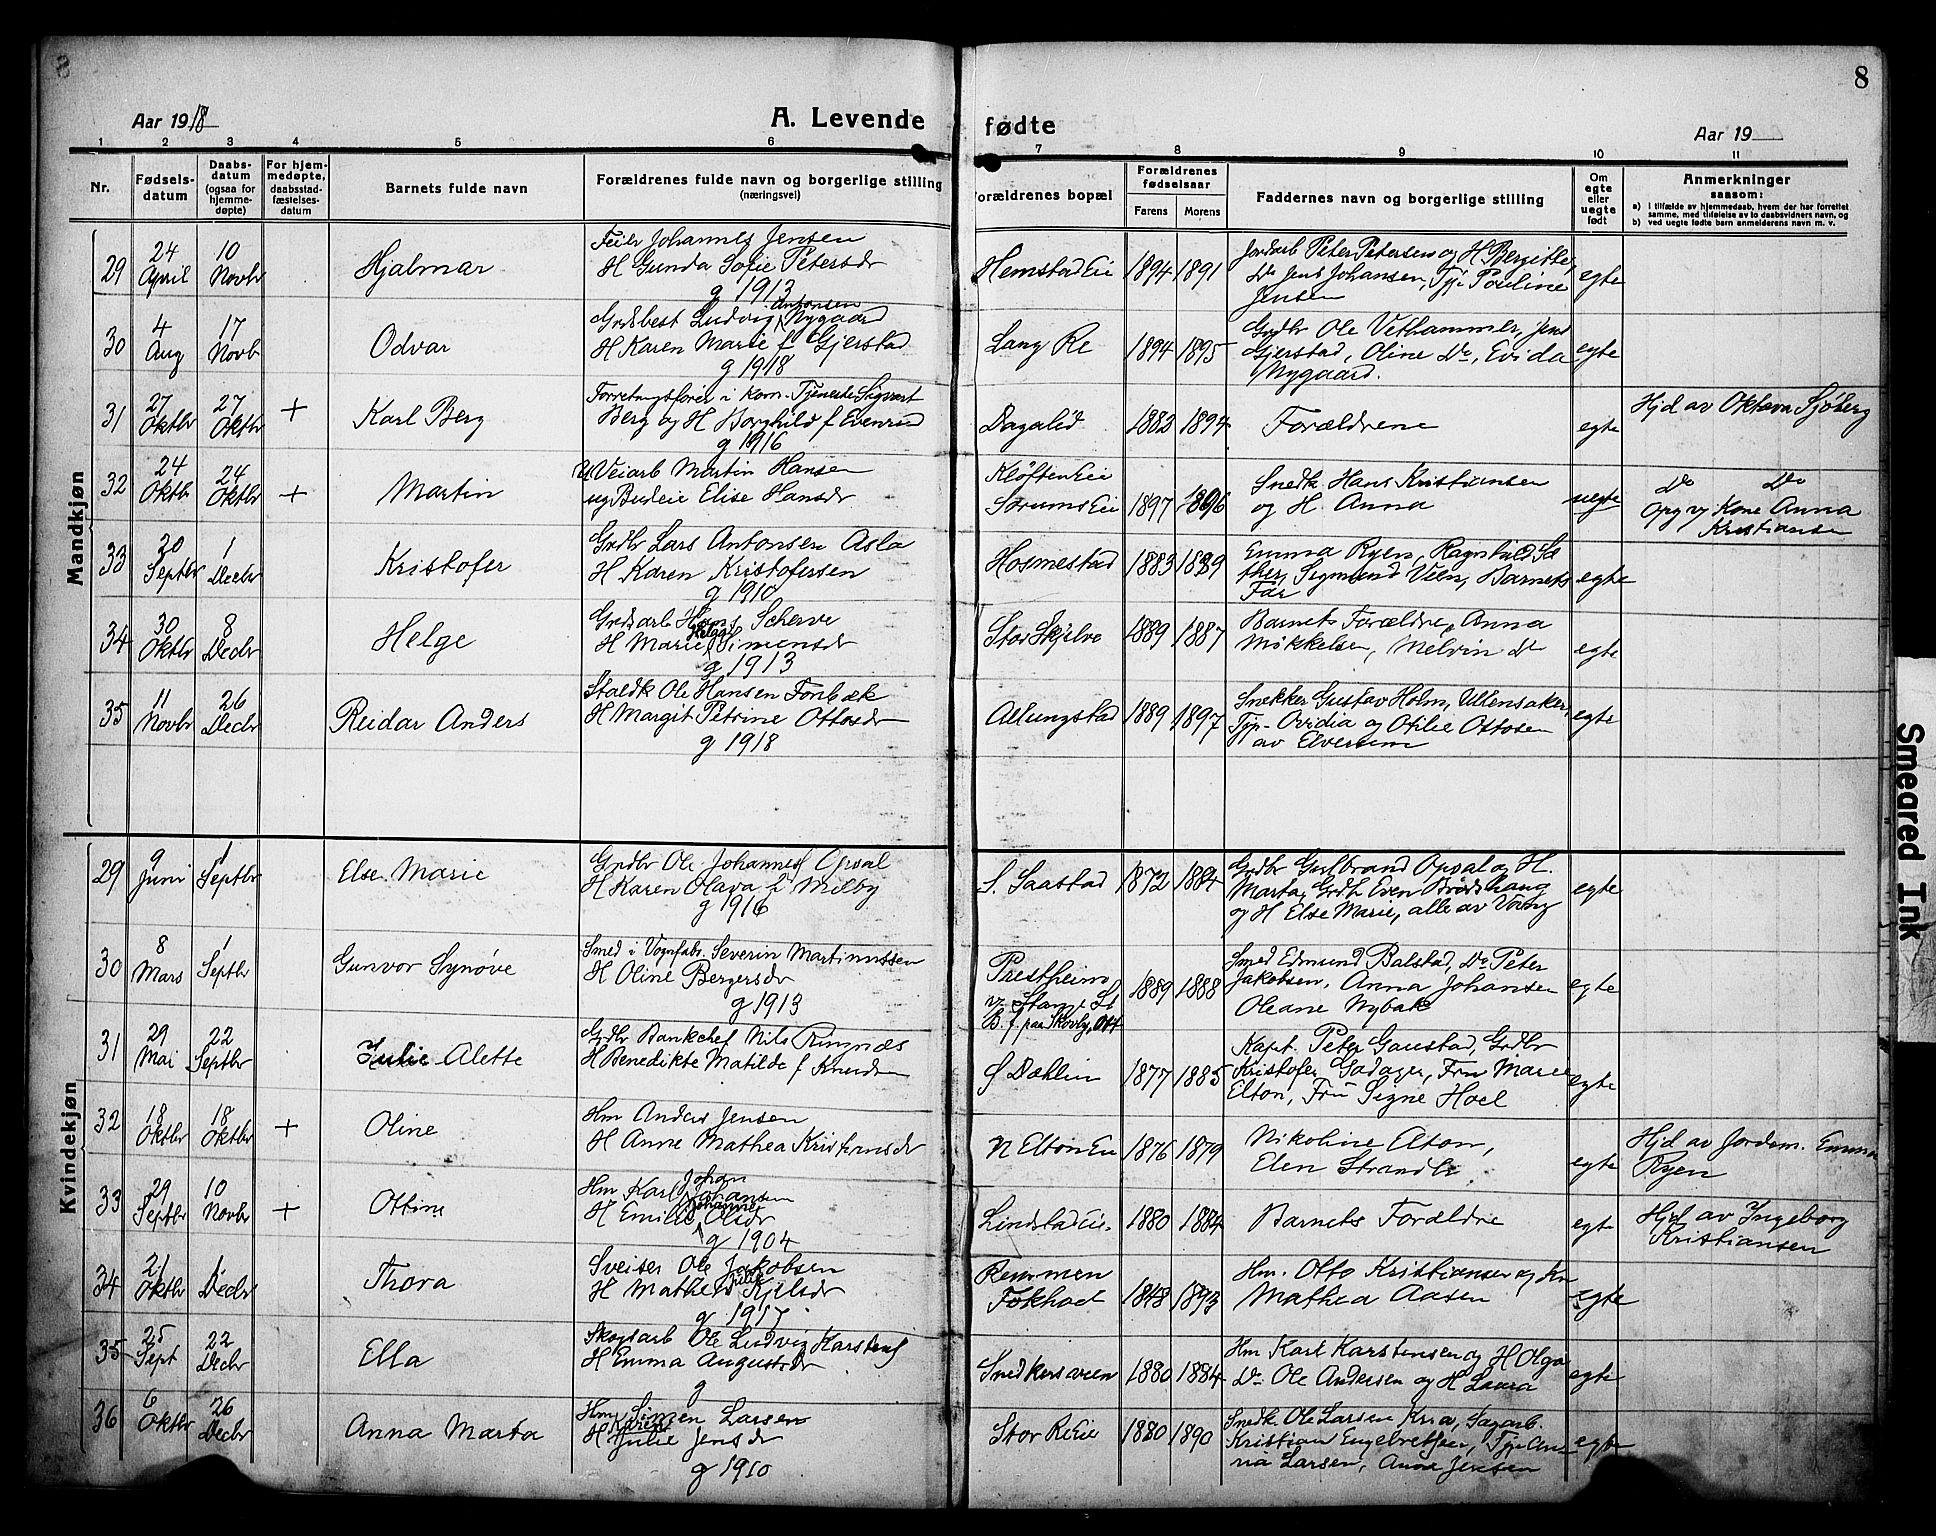 8
8
Aar 1918
A. Levende fødte
Aar 19
1 2 3 4 5 6 7 8 9 10 11
Nr.
Fødsels-
datum
Daabs-
datum
(ogsaa for
hjemme-
døpte)
For hjem-
medøpte,
daabsstad-
fæstelses-
datum
Barnets fulde navn
Forældrenes fulde navn og borgerlige stilling
(næringsvei)
Forældrenes bopæl
Forældrenes
fødselsaar
Farens Morens
Faddernes navn og borgerlige stilling
Om
egte
eller
uegte
født
Anmerkninger
saasom:
a) i tilfælde av hjemmedaab, hvem der har forrettet
samme, med tilføielse av to daabsvidners navn, og
b) ved uegte fødte barn anmelderens navn m. v.
Mandkjøn
29
24
April
10
Novbr
Hjalmar
Feier Johannes Jensen
H Gunda Sofie Petersdr
g 1913
Hemstad Eie
1894 1891
Jordarb Peter Petersen og H Bergitte,
Do Jens Johansen, Tjp Pauline
Jensen
egte
30
4
Aug
17
Novb
Odvar
Grdsbest Ludvig Antonsen Nygaard
H Karen Marie f Gjerstad
g 1918
Lang Re
1894 1895
Grdbr Ole Vethammer, Jens
Gjerstad, Oline Do, Evida
Nygaard.
egte
31
27
Oktbr
27
Oktbr
+
Karl Berg
Forretningsfører i kom. Tjeneste Sigvart
Berg og H Borghild f Evenrud
g 1916
Dagalid
1883 1894
Forældrene
egte
Hjd av Oktava Sjöberg
32
24
Oktbr
24
Oktbr
+
Martin
Veiarb Martin Hansen
ug Budeie Elise Hansdr
Kløften Eie
Sørums Eie
1897 1896
Snedk Hans Kristiansen
og H. Anna
uegte
Do Do
Opg v Kone Anna
Kristiansen
33
20
Septbr
1
Decbr
Kristofer
Grdbr Lars Antonsen Asla
H Karen Kristofersen
g 1910
Hosmestad
1883 1889
Emma Ryen, Ragnhild Sæ
ther, Sigmund Veen, Barnets
Far
egte
34
30
Oktbr
8
Decbr
Helge
Grdsarb Hans Scherve
H Marie Helga Simensdr
g 1913
Stor Skjelve
1889 1887
Barnets Forældre, Anna
Mikkelsen, Melvin Do
egte
35
11
Novbr
26
Decbr
Reidar Anders
Staldk Ole Hansen Fonbæk
H Margit Petrine Ottosdr
g 1918
Allungstad
1889 1897
Snekker Gustav Holm, Ullensaker,
Tjp. Ovidia og Otilie Ottosen
av Elverum
egte
Kvindekjøn
29
9
Juni
1
Septbr
Else Marie
Grdbr Ole Johannes Opsal
H Karen Olava f Milby
g 1916
S. Saastad
1872 1884
Grdbr Gulbrand Opsal og H.
Marta, Grdb Even Brødshaug
og H Else Marie, alle av Vang
egte
30
8
Mars
1
Septbr
Gunvor Synøve
Smed i Vognfabr. Severin Martinussen
H Oline Bergersdr
g 1913
Prestheim
v. Stange St
B. f. paa Skovly, Ott
1889 1888
Smed Edmund Balstad, Do Peter
Jakobsen, Anna Johansen
Oleane Nybak
egte
31
29
Mai
22
Septbr
Julie Alette
Grdbr Bankchef Nils Ringnæs
H Benedikte Matilde f Knudsen
S Dæhlin
1877 1885
Kapt. Peter Gaustad, Grdbr
Kristofer Godager, Fru Marie
Elton, Fru Signe Hoel
egte
32
18
Oktbr
18
Oktbr
+
Oline
Hm Anders Jensen
H Anne Mathea Kristensdr
N Elton Eie
1876 1879
Nikoline Elton,
Elen Strandli
egte
Hjd av Jordem. Emma
Ryen
33
29
Septbr
10
Novbr
+
Ottine
Hm Karl Johan Johansen
H Emilie Johanne Olsdr
g 1904
Lindstad Eie.
1880 1884
Barnets Forældre
egte
Hjd av Ingeborg
Kristiansen
34
21
Oktbr
1
Decbr
Thora
Sveiser Ole Jakobsen
H Mathea Julie Kjelsdr
g 1917
Remmen
Fokhod
1848 1893
Hm. Otto Kristiansen og Kn
Mathea Aasen
egte
35
25
Sept
22
Decbr
Ella
Skogsarb Ole Ludvig Karstens
H Emma Augustdr
g
Snedkersveen
1880 1884
Hm Karl Karstensen og H Olga
Do Ole Andersen og H Laura
egte
36
6
Oktbr
26
Decbr
Anna Marta
Hm Simen Larsen
H Karen Julie Jensdr
g 1910
Stor Re Eie
1880 1890
Snedk Ole Larsen Kria, Sagarb.
Kristian Engebretsen, Tjp An
na Larsen, Anna Jensen
egte
Smeared Ink